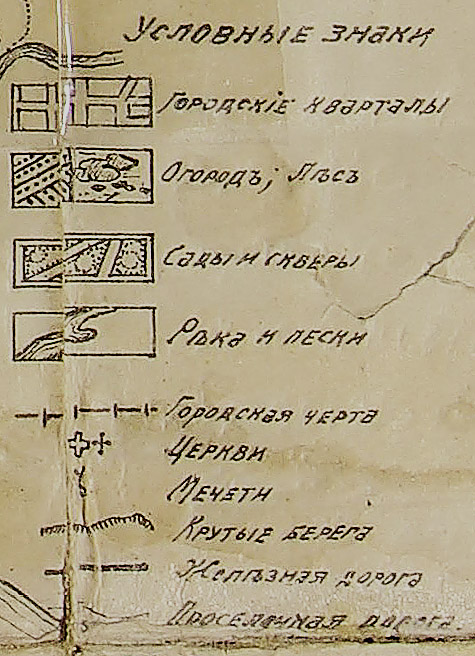 Условные знаки
Городскіе кварталы
Огородъ; Лѣсъ
Сады и скверы
Рѣка и пески
Городская черта
Церкви
Мечети
Крутые берега
Желѣзная дорога
Проселочная дорога.